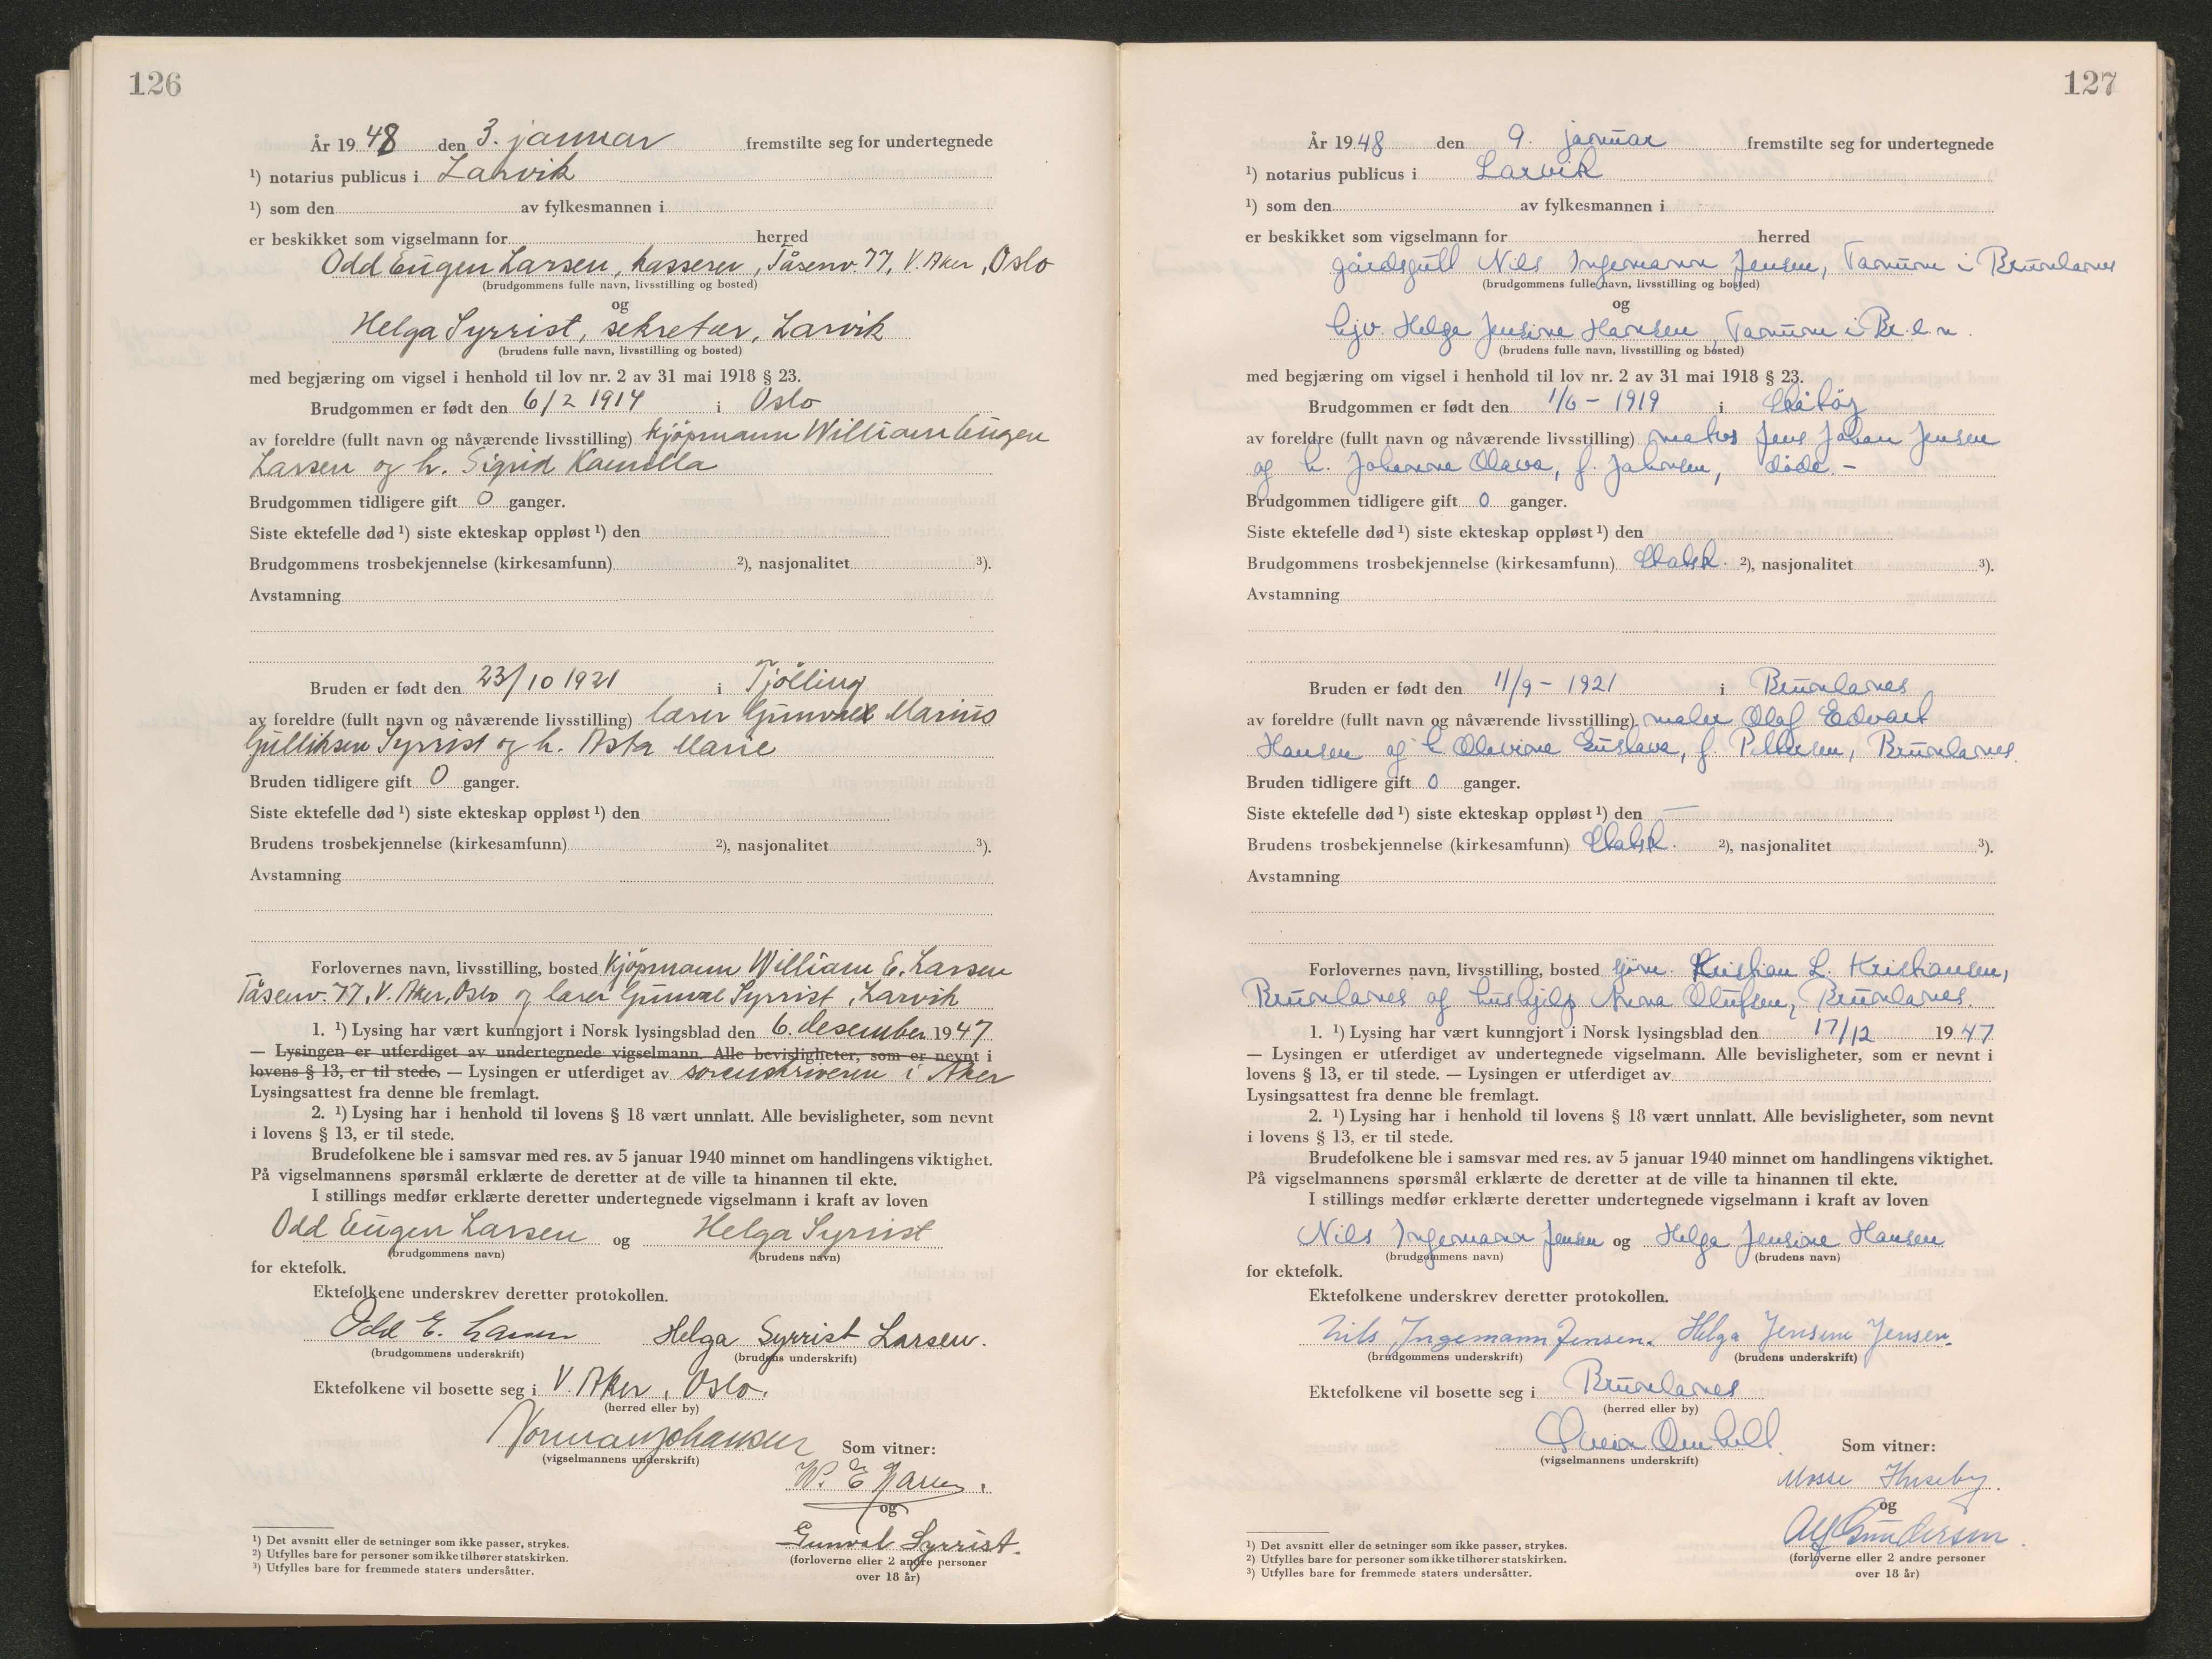 126
År 1948 den 3. januar fremstilte seg for undertegnede
¹) notarius publicus i Larvik
¹) som den av fylkesmannen i
er beskikket som vigselmann for herred
Odd Eugen Larsen, kasserer, Tåsenv. 77, V. Aker, Oslo
(brudgommens fulle navn, livsstilling og bosted)
og
Helga Syrrist, sekretær, Larvik
(brudens fulle navn, livsstilling og bosted)
med begjæring om vigsel i henhold til lov nr. 2 av 31 mai 1918 § 23.
Brudgommen er født den 6/2 1914 i Oslo
av foreldre (fullt navn og nåværende livsstilling) kjöpmann William Eugen
Larsen og h. Sigrid Kamilla
Brudgommen tidligere gift 0 ganger.
Siste ektefelle død ¹) siste ekteskap oppløst ¹) den
Brudgommens trosbekjennelse (kirkesamfunn) ²), nasjonalitet ³).
Avstamning
Bruden er født den 23/10 1921 i Tjölling
av foreldre (fullt navn og nåværende livsstilling) lærer Gunval Marius
Gulliksen Syrrist og h. Asta Marie
Bruden tidligere gift 0 ganger.
Siste ektefelle død ¹) siste ekteskap oppløst ¹) den
Brudens trosbekjennelse (kirkesamfunn) ²), nasjonalitet ³).
Avstamning
Forlovernes navn, livsstilling, bosted Kjöpmann William E. Larsen
Tåsenv. 77, V. Aker, Oslo og lærer Gunval Syrrist, Larvik
1. ¹) Lysing har vært kunngjort i Norsk lysingsblad den 6. desember 1947
— Lysingen er utferdiget av undertegnede vigselmann. Alle bevisligheter, som er nevnt i
lovens § 13, er til stede. — Lysingen er utferdiget av sorenskriveren i Aker
Lysingsattest fra denne ble fremlagt.
2. ¹) Lysing har i henhold til lovens § 18 vært unnlatt. Alle bevisligheter, som nevnt
i lovens § 13, er til stede.
Brudefolkene ble i samsvar med res. av 5 januar 1940 minnet om handlingens viktighet.
På vigselmannens spørsmål erklærte de deretter at de ville ta hinannen til ekte.
I stillings medfør erklærte deretter undertegnede vigselmann i kraft av loven
Odd Eugen Larsen og Helga Syrrist
(brudgommens navn) (brudens navn)
for ektefolk.
Ektefolkene underskrev deretter protokollen.
Odd E. Larsen Helga Syrrist Larsen.
(brudgommens underskrift) (brudens underskrift)
Ektefolkene vil bosette seg i V. Aker, Oslo.
(herred eller by)
Som vitner:
(vigselmannens underskrift)
W. E. Larsen.
og
Gunval Syrrist.
(forloverne eller 2 andre personer
over 18 år)
¹) Det avsnitt eller de setninger som ikke passer, strykes.
²) Utfylles bare for personer som ikke tilhører statskirken.
³) Utfylles bare for fremmede staters undersåtter.
127
År 1948 den 9. januar fremstilte seg for undertegnede
¹) notarius publicus i Larvik
¹) som den av fylkesmannen i
er beskikket som vigselmann for herred
Nils Ingemann Jensen, Tanum i Brunlanes
(brudgommens fulle navn, livsstilling og bosted)
og
hjv. Helga Jensine Hansen, Tanum i Br.l.n.
(brudens fulle navn, livsstilling og bosted)
med begjæring om vigsel i henhold til lov nr. 2 av 31 mai 1918 § 23.
Brudgommen er født den 1/6 - 1919 i Skåtöy
av foreldre (fullt navn og nåværende livsstilling) Jens Johan Jensen
og h. Johanna Olava, f. Johnsen, døde. -
Brudgommen tidligere gift 0 ganger.
Siste ektefelle død ¹) siste ekteskap oppløst ¹) den
Brudgommens trosbekjennelse (kirkesamfunn) Statsk. ²), nasjonalitet ³).
Avstamning
Bruden er født den 11/9 - 1921 i Brunlanes
av foreldre (fullt navn og nåværende livsstilling) maler Olaf Edvart
Hansen og h. Olavine Gustava, f. Pettersen, Brunlanes.
Bruden tidligere gift 0 ganger.
Siste ektefelle død ¹) siste ekteskap oppløst ¹) den —
Brudens trosbekjennelse (kirkesamfunn) Statsk. ²), nasjonalitet ³).
Avstamning
Forlovernes navn, livsstilling, bosted Kristian L. Kristiansen,
Brunlanes og hushjelp Anna Olufsen, Brunlanes.
1. ¹) Lysing har vært kunngjort i Norsk lysingsblad den 17/12 1947
— Lysingen er utferdiget av undertegnede vigselmann. Alle bevisligheter, som er nevnt i
lovens § 13, er til stede. — Lysingen er utferdiget av
Lysingsattest fra denne ble fremlagt.
2. ¹) Lysing har i henhold til lovens § 18 vært unnlatt. Alle bevisligheter, som nevnt
i lovens § 13, er til stede.
Brudefolkene ble i samsvar med res. av 5 januar 1940 minnet om handlingens viktighet.
På vigselmannens spørsmål erklærte de deretter at de ville ta hinannen til ekte.
I stillings medfør erklærte deretter undertegnede vigselmann i kraft av loven
Nils Ingemann Jensen og Helga Jensine Hansen
(brudgommens navn) (brudens navn)
for ektefolk.
Ektefolkene underskrev deretter protokollen.
Nils Ingemann Jensen. Helga Jensine Jensen.
(brudgommens underskrift) (brudens underskrift)
Ektefolkene vil bosette seg i Brunlanes
(herred eller by)
Som vitner:
(vigselmannens underskrift)
Mosse Huseby.
og
Alf Gundersen.
(forloverne eller 2 andre personer
over 18 år)
¹) Det avsnitt eller de setninger som ikke passer, strykes.
²) Utfylles bare for personer som ikke tilhører statskirken.
³) Utfylles bare for fremmede staters undersåtter.